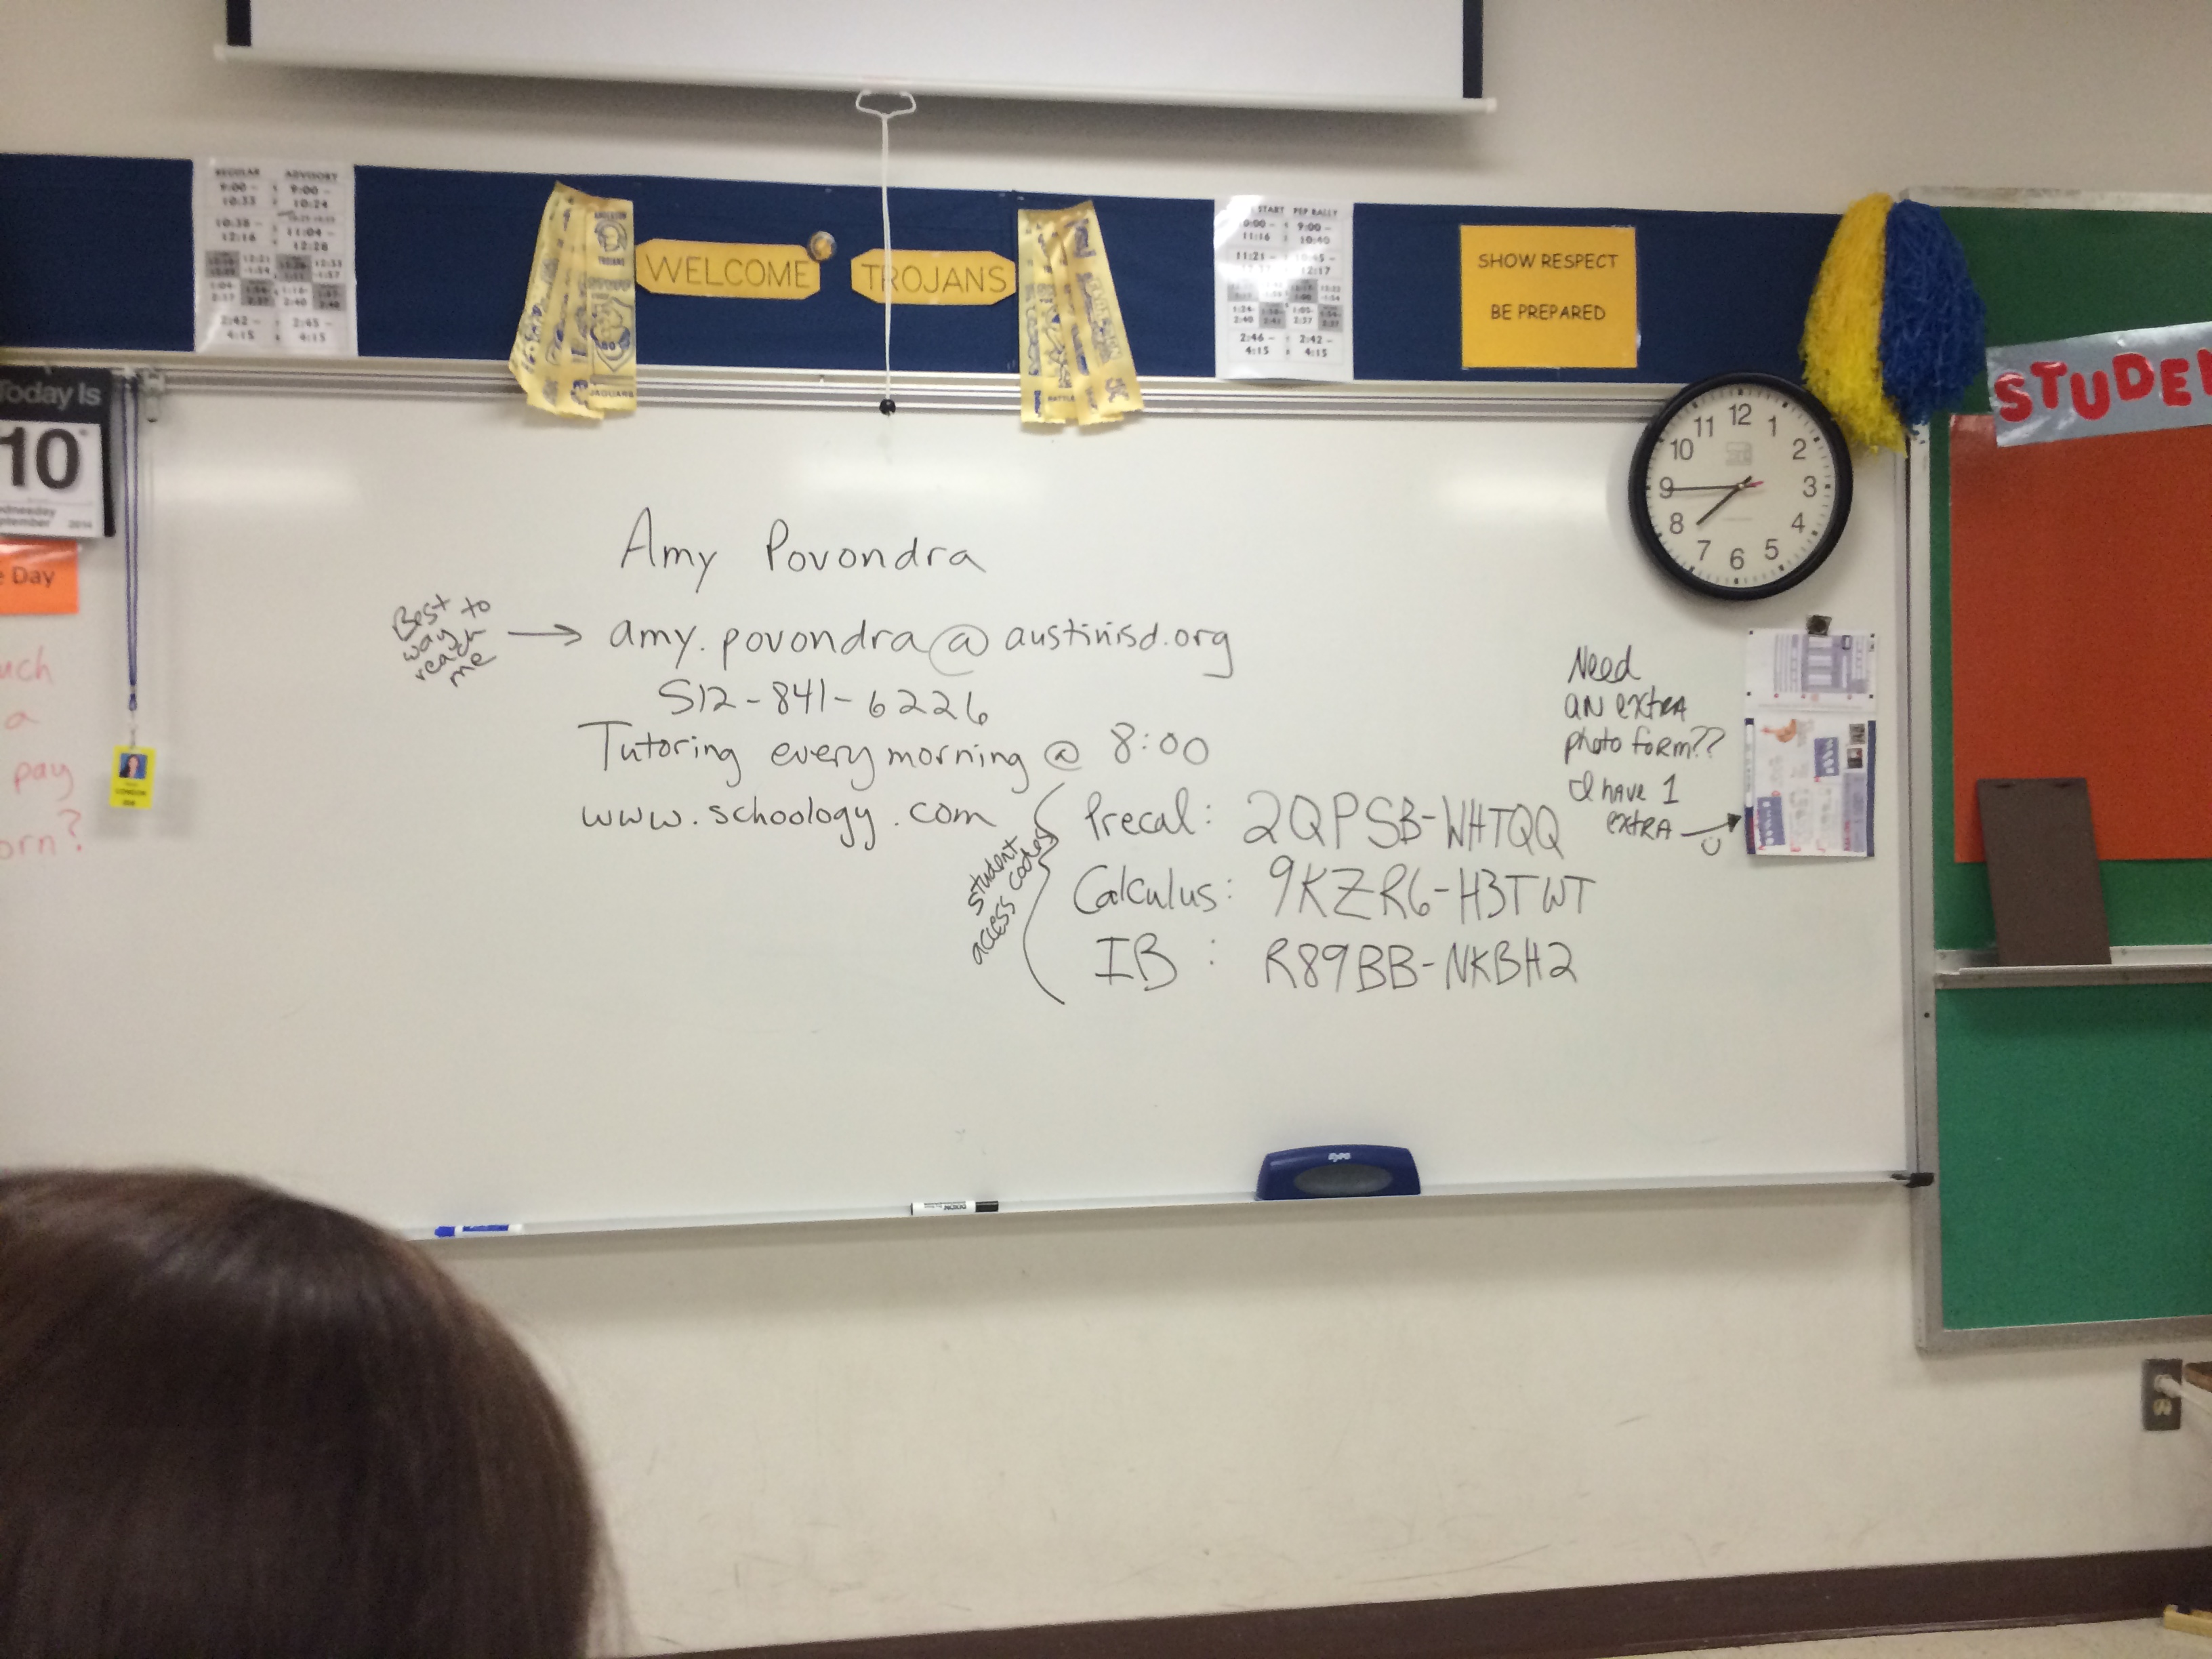 REGULAR ADVISORY
9:00 - 9:00 -
10:33 10:24
10:38 - 11:04 -
12:16 12:28
2:42 - 2:45 -
4:15 4:15
WELCOME TROJANS
JAGUARS
START PEP RALLY
9:00 -
11:16 10:40
11:21 - 10:45 -
12:17
2:46 - 2:42 -
4:15 4:15
SHOW RESPECT
BE PREPARED
Today Is
10
2014
Day
12 1 2 3 4 5 6 7 8 9 10 11
Amy Povondra
Best way to reach me
amy.povondra@austinisd.org
512-841-6226
Tutoring every morning @ 8:00
www.schoology.com
student access codes
Precal: 2QPSB-WHTQQ
Calculus: 9KZR6-H3TWT
IB : R89BB-NKBH2
Need
AN extRA
photo foRm??
I have 1
extRA
a
pay
LONDON